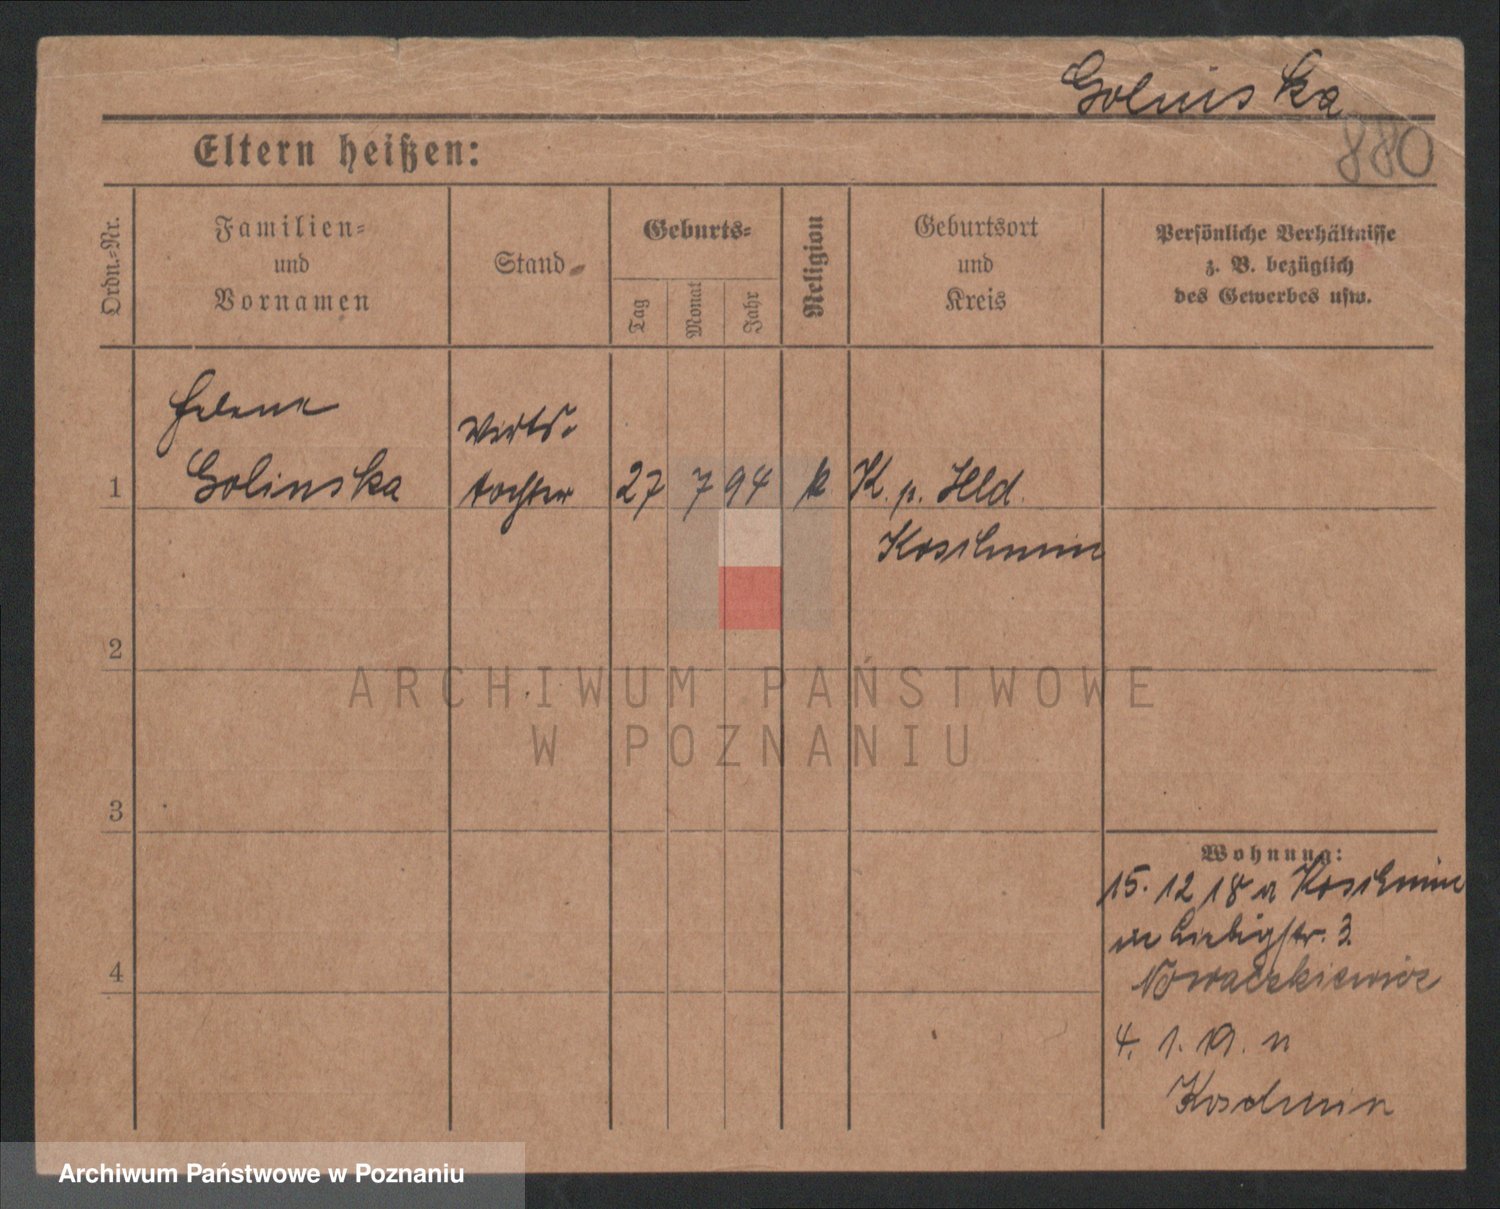 Golinska
880
Eltern heißen:
Ordn.-Nr.
Familien-
und
Vornamen
Stand
Geburts-
Tag
Monat
Jahr
Religion
Geburtsort
und
Kreis
Persönliche Verhältnisse
z. B. bezüglich
des Gewerbes usw.
Helena
Golinska
Wirts-
tochter
1
27 7 94 k K. p. Feld
Koschmin
2
ARCHIWUM PAŃSTWOWE
W POZNANIU
3
Wohnung:
15. 12 18 v Koschmin
Liebigstr. 3.
Nowaczkiewicz
4
4. 1. 19. n
Koschmin
Archiwum Państwowe w Poznaniu